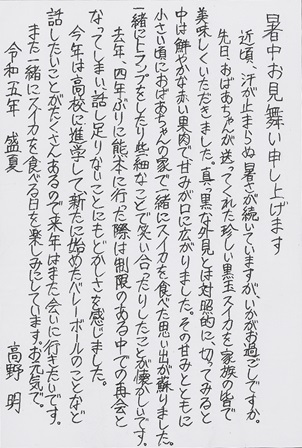 暑中お見舞い申し上げます
近頃、汗が止まらぬ暑さが続いていますが、いかがお過ごしですか。
先日、おばあちゃんが送ってくれた珍しい黒玉スイカを家族の皆で
美味しくいただきました。真っ黒な外見とは対照的に、切ってみると
中は鮮やかな赤い果肉で、甘みが口に広がりました。その甘みとともに
小さい頃におばあちゃんの家で一緒にスイカを食べた思い出が蘇りました。
一緒にトランプをしたり些細なことで笑い合ったりしたことが懐かしいです。
去年、四年ぶりに熊本に行った際は制限のある中での再会と
なってしまい、話し足りないことにもどかしさを感じました。
今年は高校に進学して新たに始めたバレーボールのことなど
話したいことがたくさんあるので来年はまた会いに行きたいです。
また一緒にスイカを食べる日を楽しみにしています。お元気で。
令和五年 盛夏
高野 明